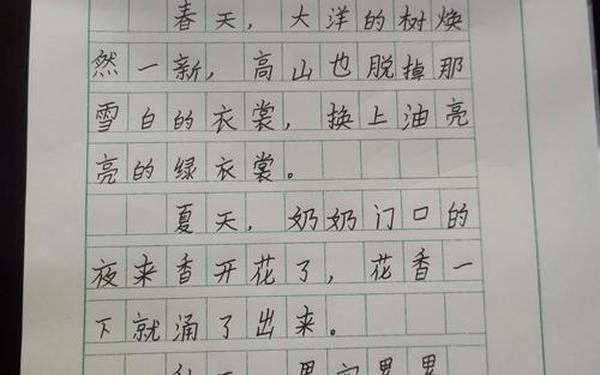 春天，大洋的树焕
然一新，高山也脱掉那
雪白的衣裳，换上油亮
亮的绿衣裳。
夏天，奶奶门口的
夜来香开花了，花香一
下就涌了出来。